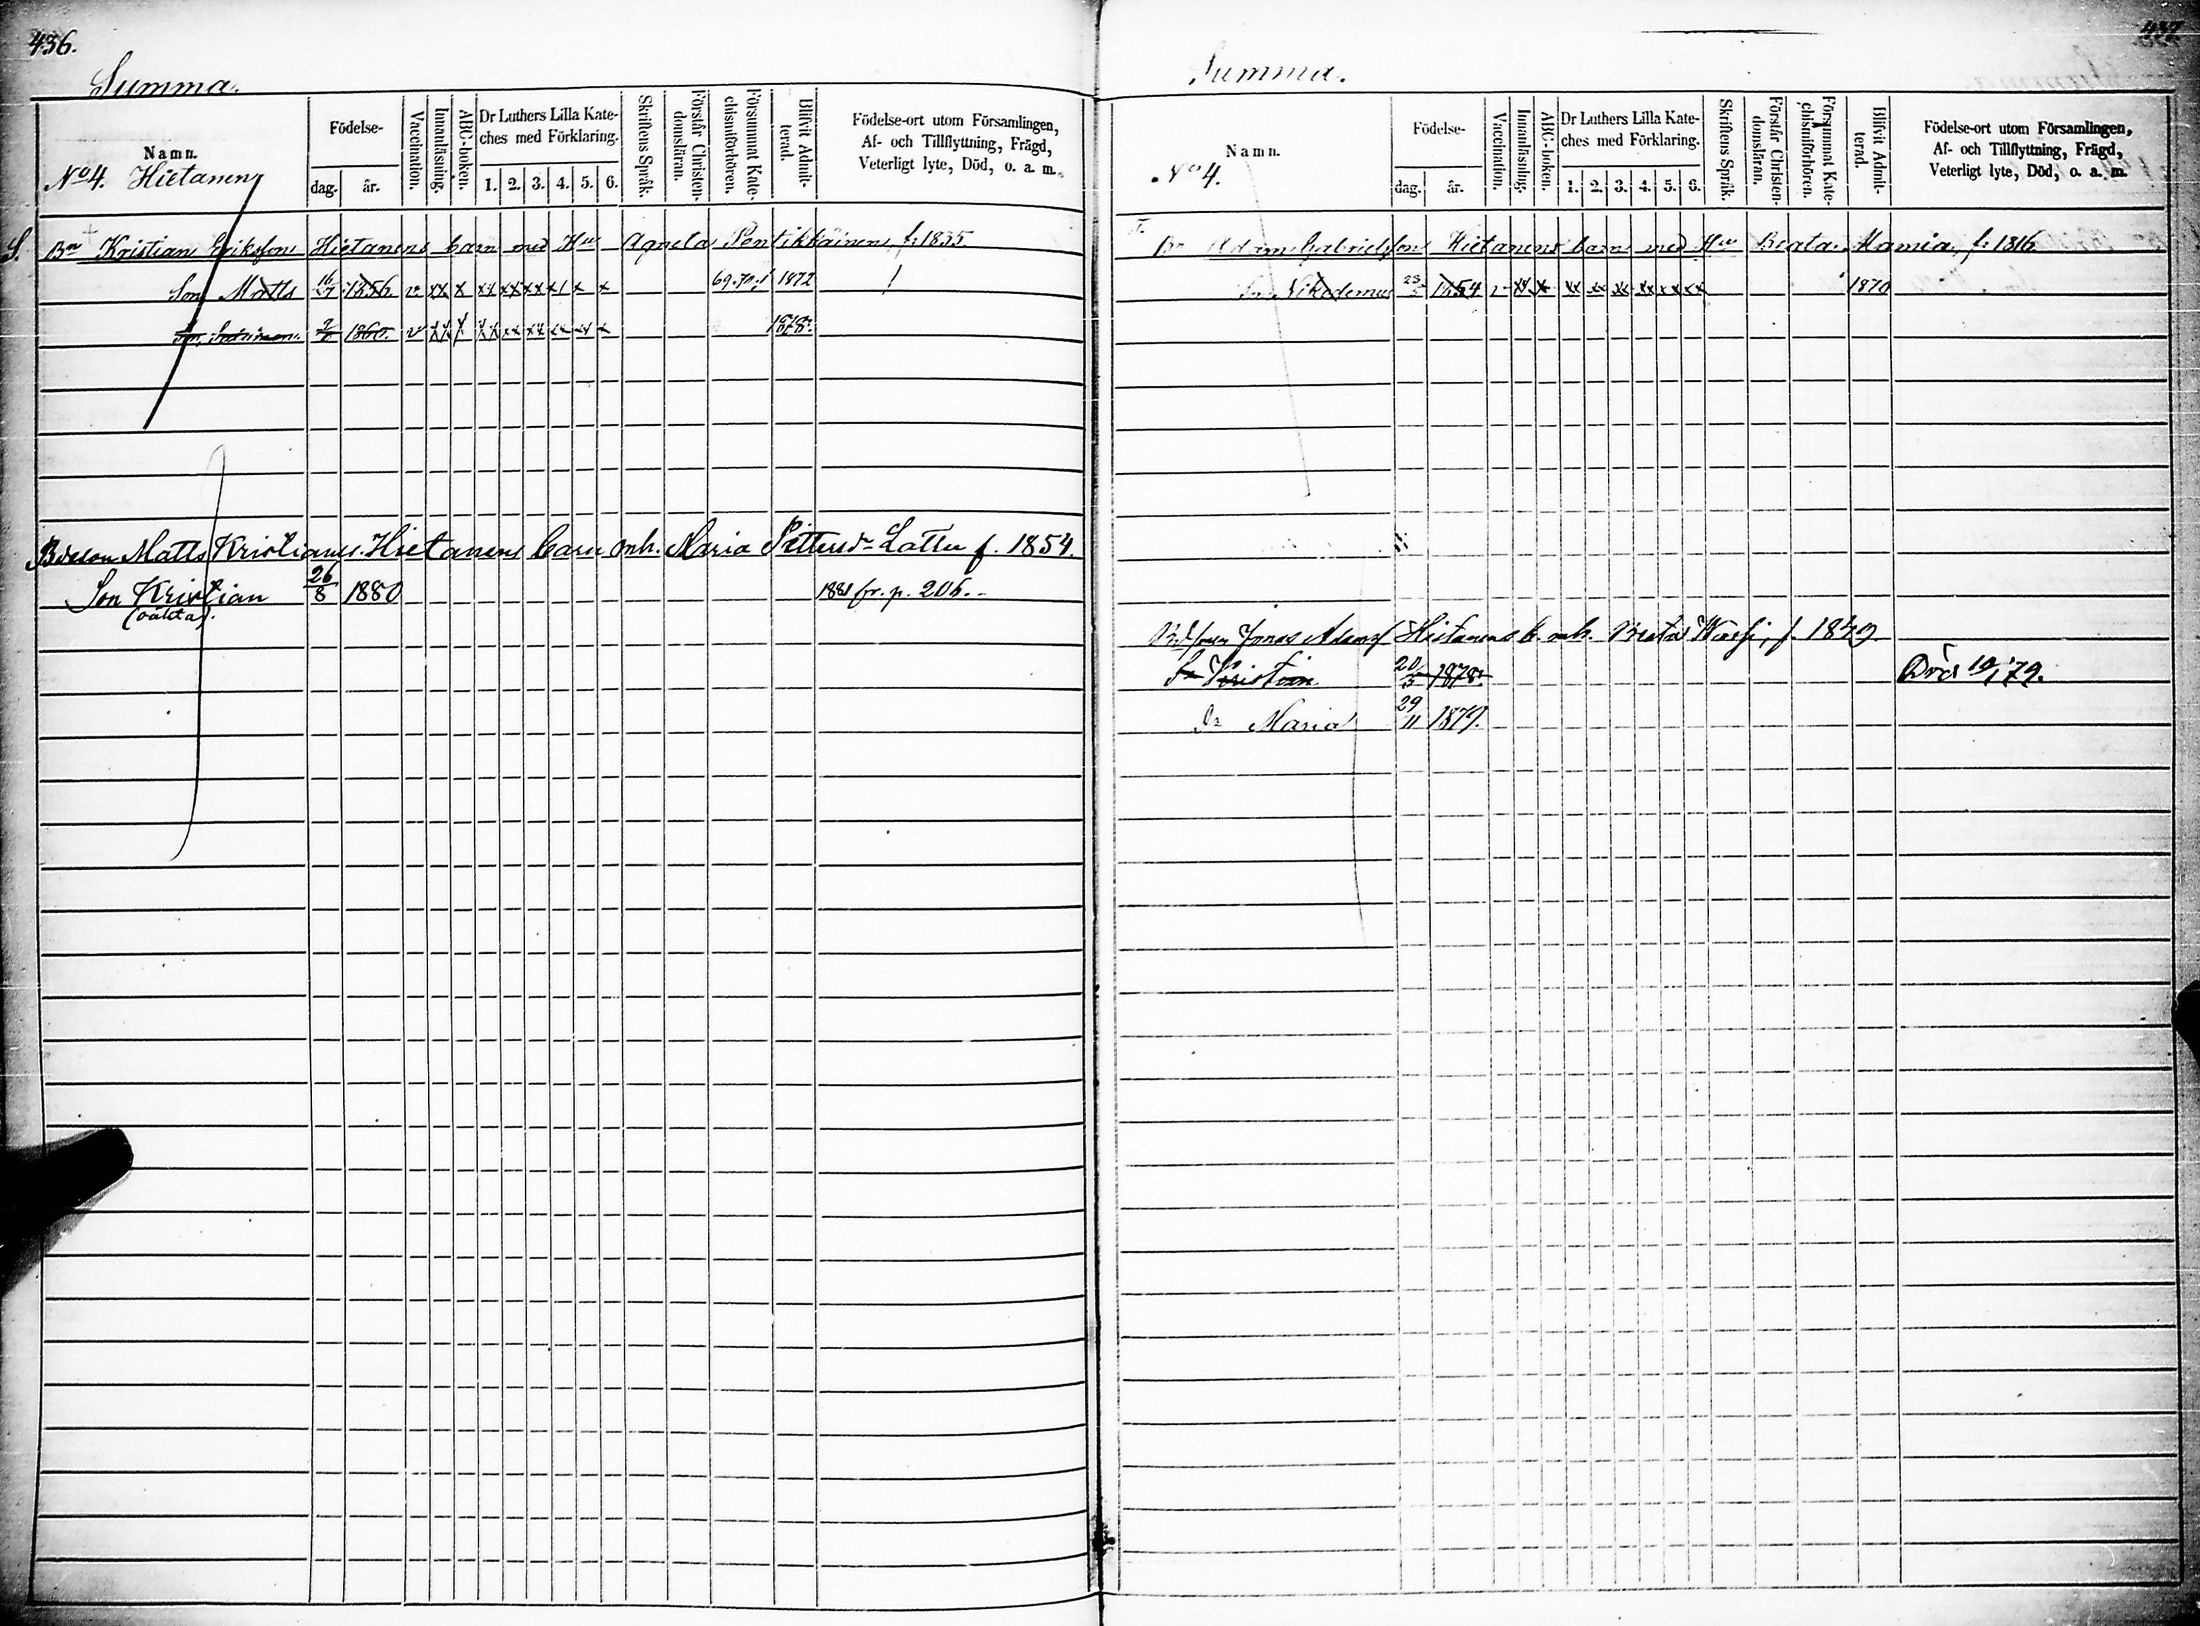 436.
Summa.
Namn.
Födelse-
dag.
år.
Vaccination.
Innanläsning.
ABC-boken.
Dr Luthers Lilla Kate-
ches med Förklaring.
1. 2. 3. 4. 5. 6.
Skriftens Språk.
Förstår Christen-
domsläran.
Försummat Kate-
chismiförhören.
Blifvit Admit-
terad.
Födelse-ort utom Församlingen,
Af- och Tillflyttning, Frägd,
Veterligt lyte, Död, o. a. m.
No 4. Hietanen
S. Bn Kristian Eriksson Hietanens barn med Hu Agneta Pentikkäinen, f. 1835.
Son Matts 1856 v xx x xx xx xx x x x 69.70. 1872
Son 1860. v xx x xx xx xx xx xx x 1878.
Matts Kristians. Hietanens barn mh. Maria Pettersdr Lattu f. 1854.
Son Kristian 26/8 1880 1881 fr. p. 206.
(oäkta).
437
Summa.
Namn.
Födelse-
dag.
år.
Vaccination.
Innanläsning.
ABC-boken.
Dr Luthers Lilla Kate-
ches med Förklaring.
1. 2. 3. 4. 5. 6.
Skriftens Språk.
Förstår Christen-
domsläran.
Försummat Kate-
chismiförhören.
Blifvit Admit-
terad.
Födelse-ort utom Församlingen,
Af- och Tillflyttning, Frägd,
Veterligt lyte, Död, o. a. m.
No 4.
Bn Adam Gabrielsson Hietanens barn med Hu Beata Mamia, f. 1816
Sn Nikodemus 1854 v xx x xx xx xx xx xx xx 1870
Jonas Adamss Hietanens b. mh. Beata f. 1849
Sn Kristian 20/5 1878. Död 79.
Dr Maria 29/11 1879.